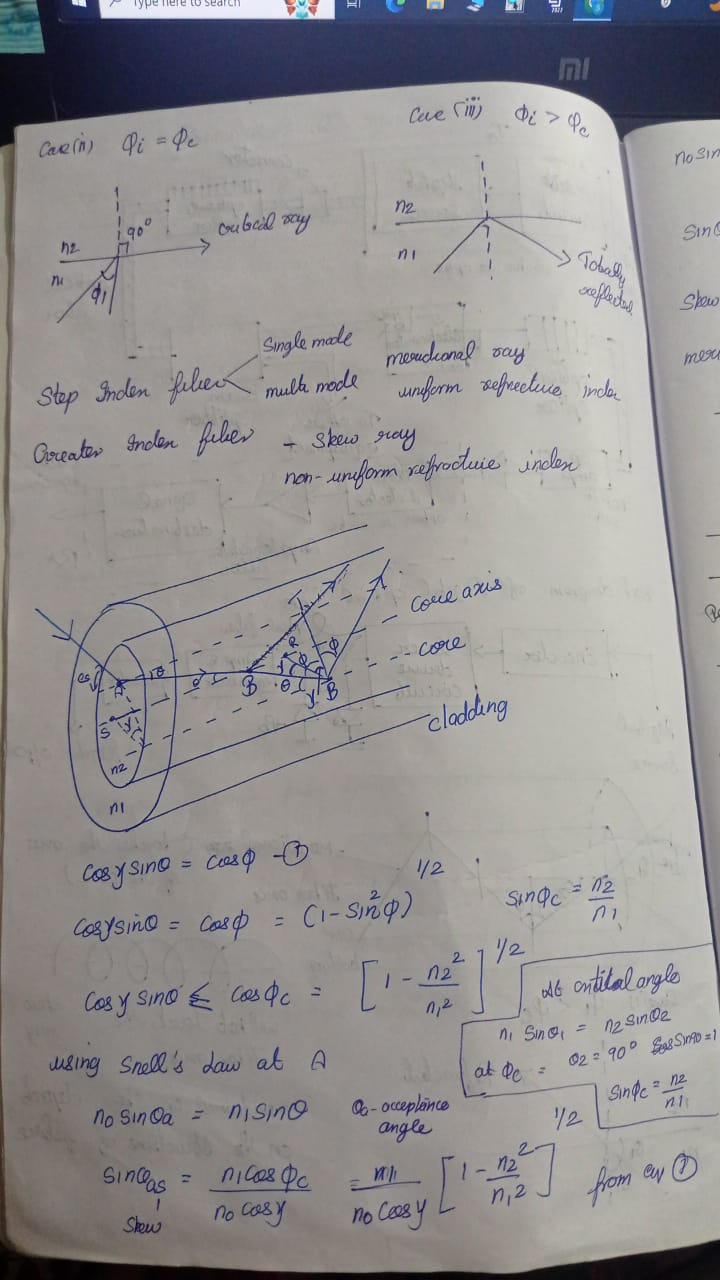 Type here to search
mi
Case (ii) Φi = Φc
Case (iii) Φi > Φc
90°
n2
n1
ϕ1
critical ray
n2
n1
Totally
reflected
Step Index fiber
Single mode
multi mode
meridional ray
uniform refractive index
Greater Index fiber - Skew ray
non-uniform refractive index
core axis
core
cladding
A
θ
B
θ
B
γ
R
ϕ
S
n2
n1
cosγ sinθ = cosϕ -①
cosγ sinθ = cosϕ = (1 - sin²ϕ)^1/2
sinϕc = n2/n1
cosγ sinθ ≤ cosϕc = [1 - n2²/n1²]^1/2
At critical angle
n1 sinθ1 = n2 sinθ2
at Φc = θ2 = 90° sin90=1
sinϕc = n2/n1
using Snell's Law at A
n0 sinθa = n1 sinθ
θa - acceptance
angle
sinθas = n1 cosϕc / n0 cosγ = n1 / n0 cosγ [1 - n2²/n1²]^1/2 from eq ①
Skew
n0 sin
sinθ
Skew